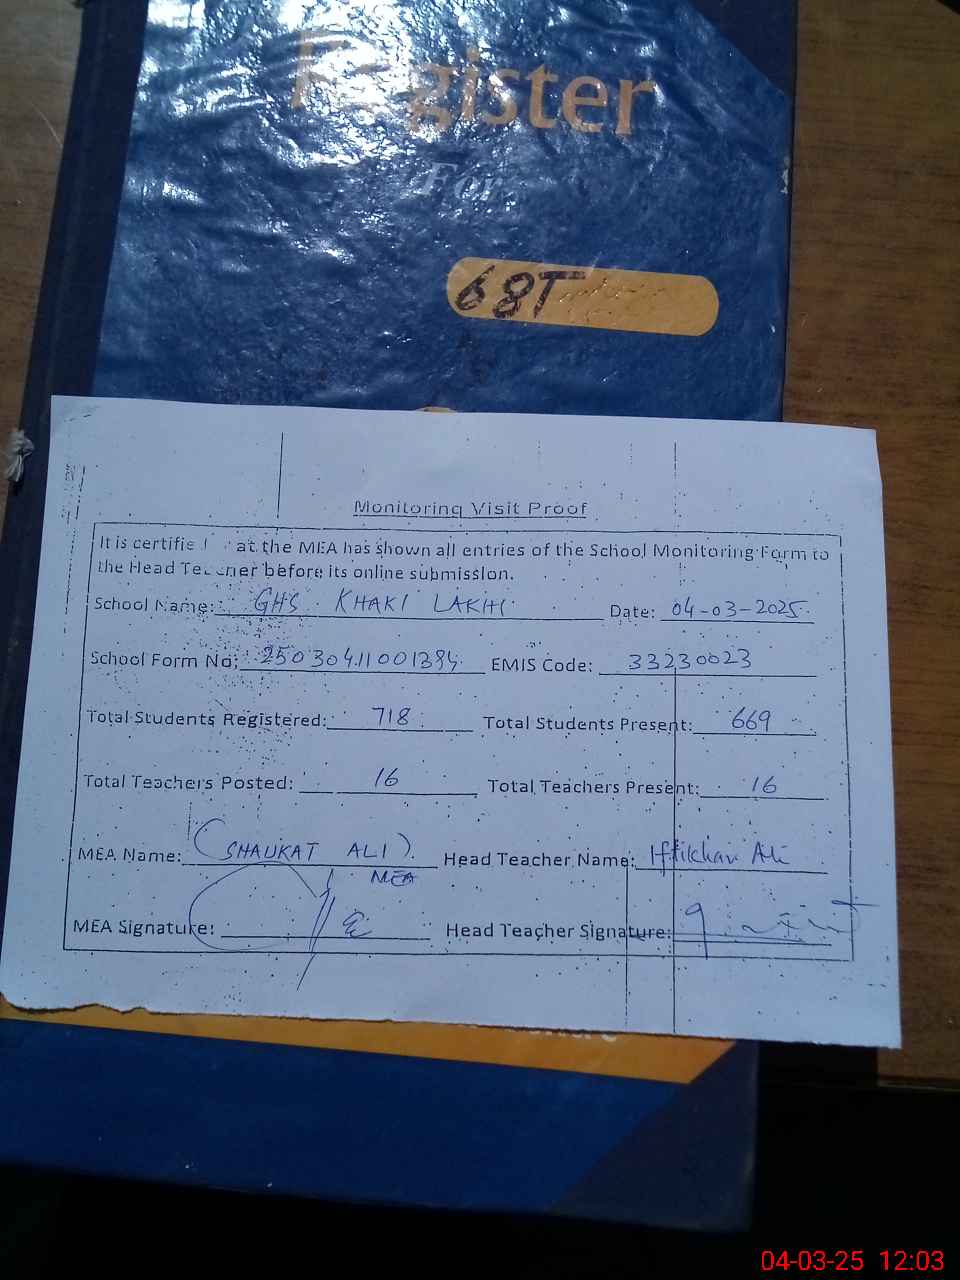 Register
For
68T
Monitoring Visit Proof
It is certifie at the MEA has shown all entries of the School Monitoring Form to
the Head Teacher before its online submission.
School Name: GHS KHAKI LAKHI Date: 04-03-2025
School Form No: 25030411001394 EMIS Code: 33230023
Total Students Registered: 718 Total Students Present: 669
Total Teachers Posted: 16 Total Teachers Present: 16
MEA Name: (SHAUKAT ALI) Head Teacher Name: Iftikhar Ali
MEA
MEA Signature: Head Teacher Signature:
04-03-25 12:03